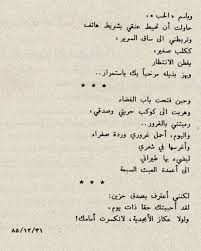 وباسم «الحب»،
حاولت أن تحيط عنقي بشريط هاتف
وتربطني الى ساق السرير،
ككلب صغير،
يقطن الانتظار
ويهز بذيله مرحباً بك باستمرار...
* * *
وحين فتحت باب الفضاء
وهربت الى كوكب حريتي وصدقي،
رميتني بالغرور...
واليوم، أحمل غروري وردة صفراء
وأغرسها في شعري
ليضيء بها طيراني
الى أعمدة العبث السبعة
* * *
لكنني أعترف بصدق حزين:
لقد أحببتك حقا ذات يوم،
ولولا عكاز الأبجدية، لانكسرت أمامك!
٨٥/١٢/٣١